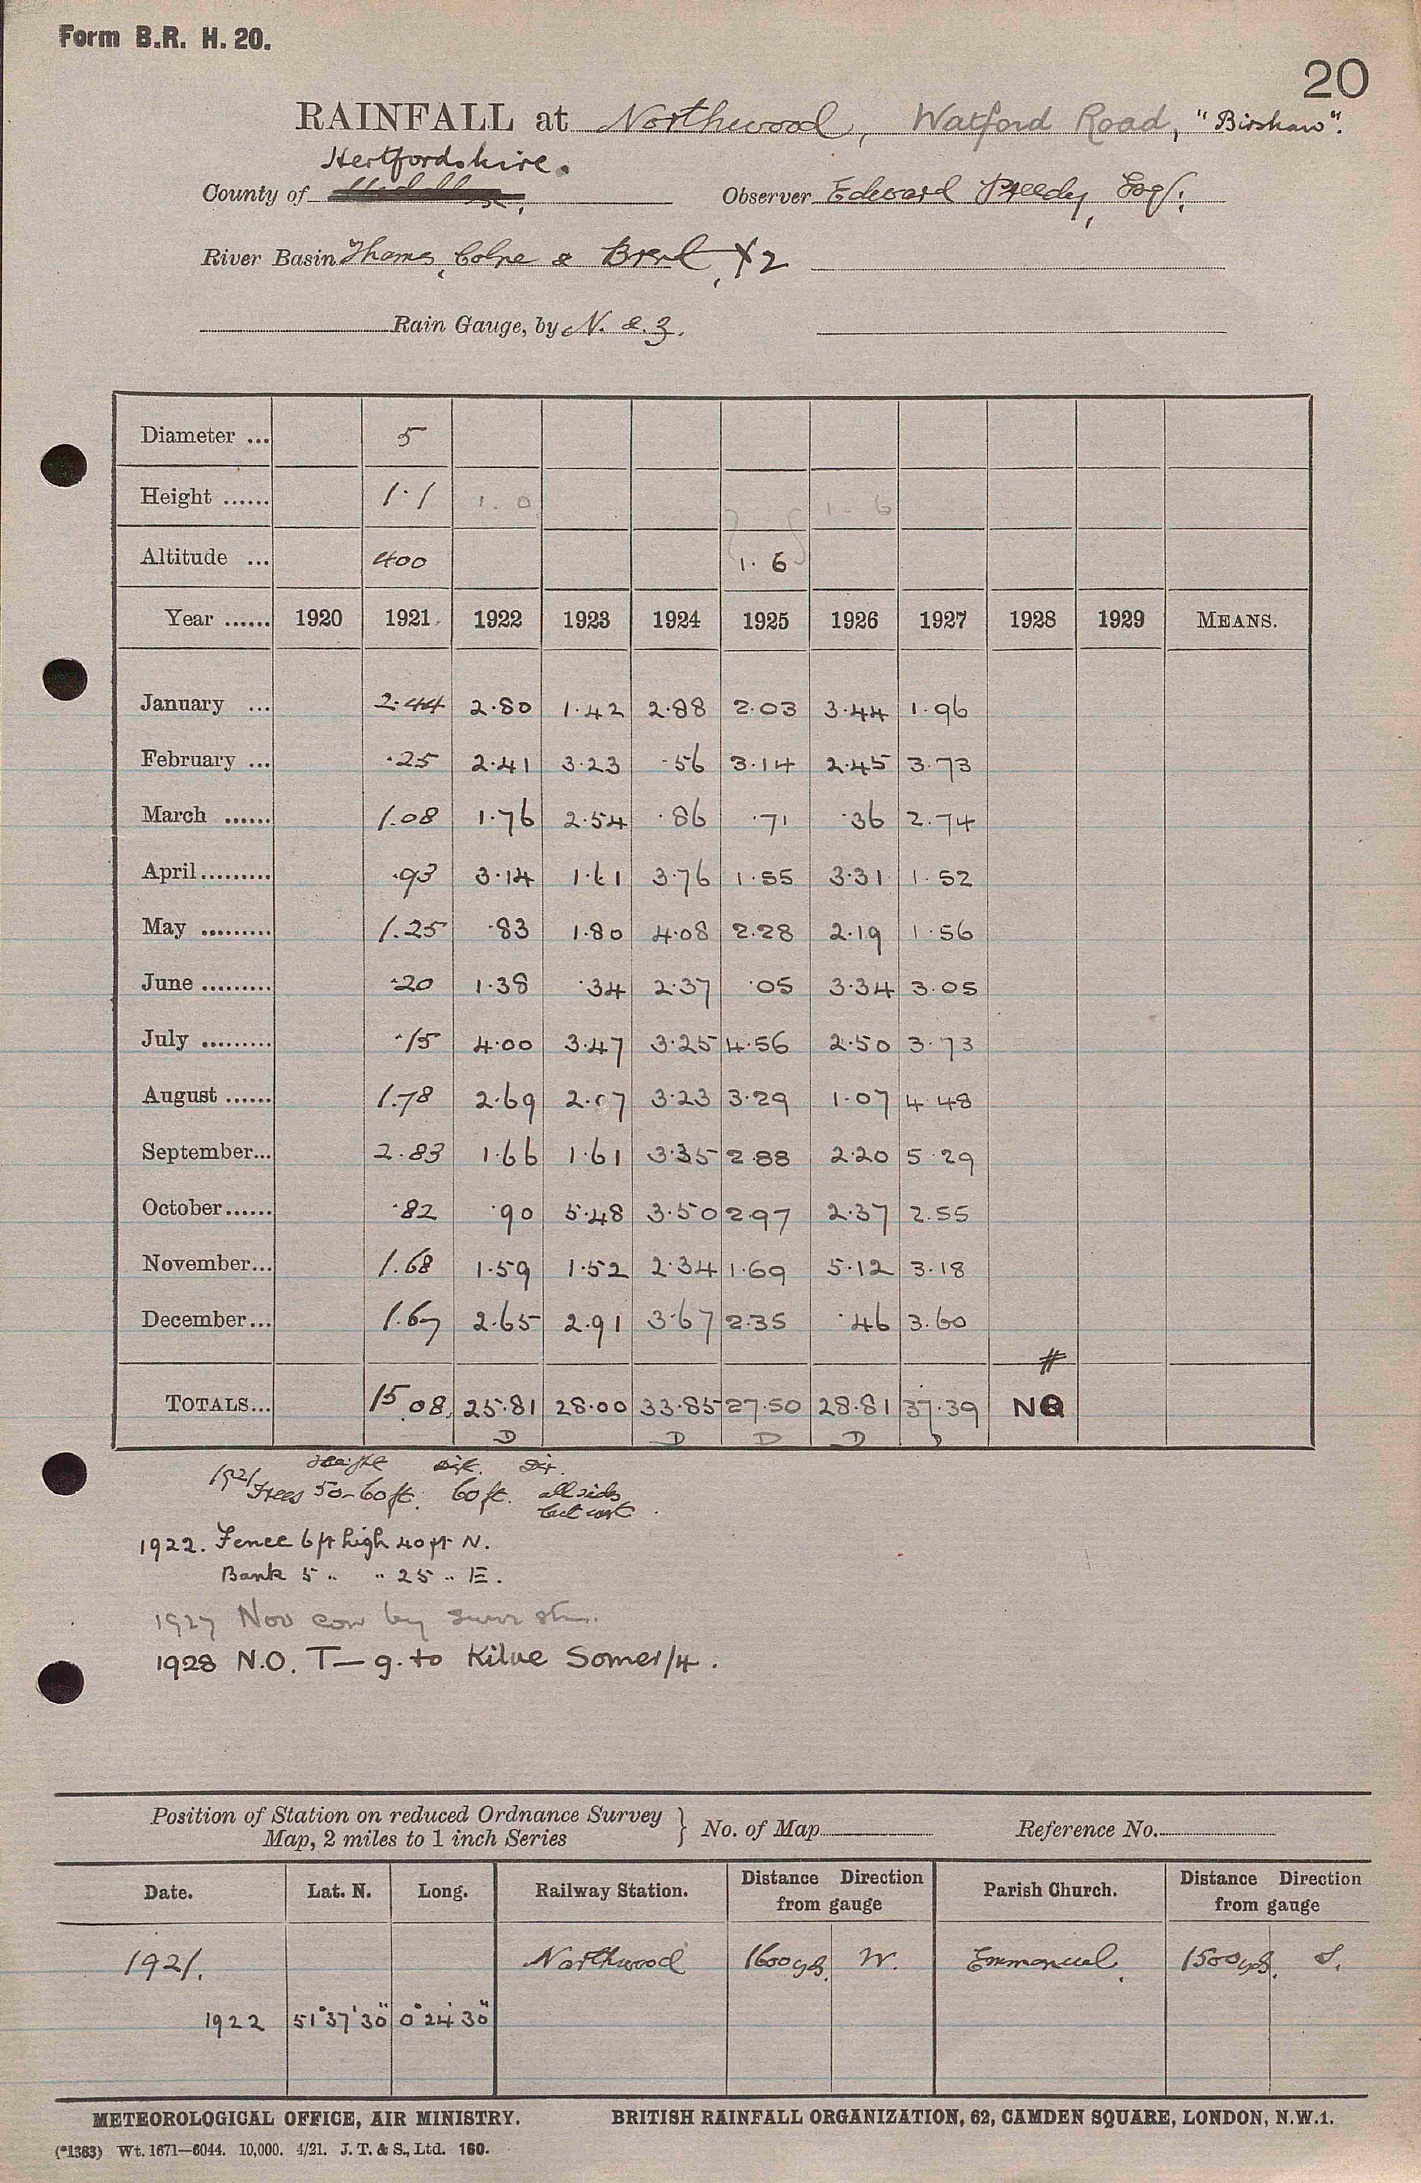 Form B.R. H. 20.
20
RAINFALL at Northwood, Watford Road, "Birshaw".
Hertfordshire.
County of Observer Edward Preedy, Esq.
River Basin Thames, Colne & Brent, X2
Rain Gauge, by N. & Z.
Diameter ... 5
Height ...... 1.1 1.0 1.6
Altitude ... 400 1.6
Year ...... 1920 1921 1922 1923 1924 1925 1926 1927 1928 1929 MEANS.
January ... 2.44 2.80 1.42 2.88 2.03 3.44 1.96
February ... .25 2.41 3.23 .56 3.14 2.45 3.73
March ...... 1.08 1.76 2.54 .86 .71 .36 2.74
April ......... .93 3.14 1.61 3.76 1.55 3.31 1.52
May ......... 1.25 .83 1.80 4.08 2.28 2.19 1.56
June ......... .20 1.38 .34 2.37 .05 3.34 3.05
July ......... .15 4.00 3.47 3.25 4.56 2.50 3.73
August ...... 1.78 2.69 2.07 3.23 3.29 1.07 4.48
September... 2.83 1.66 1.61 3.35 2.88 2.20 5.29
October...... .82 .90 5.48 3.50 2.97 2.37 2.55
November... 1.68 1.59 1.52 2.34 1.69 5.12 3.18
December... 1.67 2.65 2.91 3.67 2.35 .46 3.60
#
TOTALS... 15.08 25.81 28.00 33.85 27.50 28.81 37.39 NO
D D D D D
height dist. dir.
1921 Trees 50-60ft. 60ft. all sides
but east.
1922. Fence 6 ft high 40 ft N.
Bank 5 " " 25 " E.
1927 Nov
1928 N.O. T— g. to Kilve Somer/4.
Position of Station on reduced Ordnance Survey
Map, 2 miles to 1 inch Series } No. of Map Reference No.
Date. Lat. N. Long. Railway Station. Distance Direction from gauge Parish Church. Distance Direction from gauge
1921. Northwood 1600yds. W. Emmanuel. 1500yds. S.
1922 51°37'30" 0°24'30"
METEOROLOGICAL OFFICE, AIR MINISTRY. BRITISH RAINFALL ORGANIZATION, 62, CAMDEN SQUARE, LONDON, N.W.1.
(*1383) Wt. 1671—6044. 10,000. 4/21. J. T. & S., Ltd. 160.